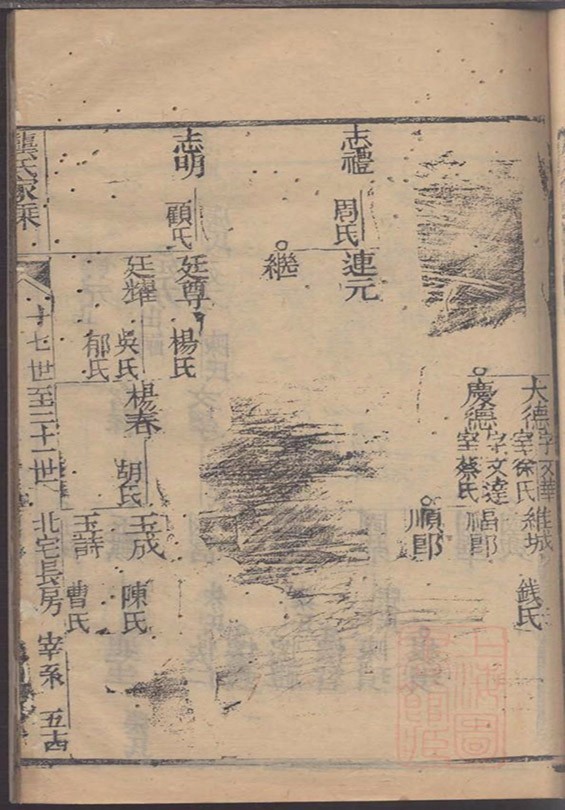 大德 字文華 室徐氏
維城 錢氏
慶德 字文達 室蔡氏
福郎
順郎
志禮 周氏
連元
繼
志明 顧氏
廷尊 楊氏
廷耀 吳氏 郁氏
楊春 胡氏
玉成 陳氏
玉詩 曹氏
龔氏家乘
十七世至二十一世
北宅長房